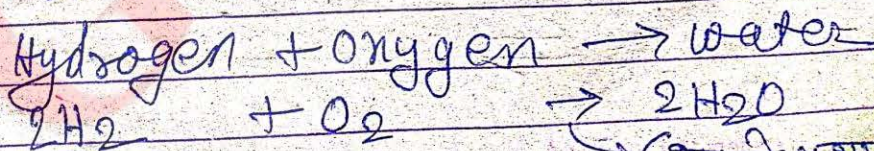 Hydrogen + Oxygen → water
2H2 + O2 → 2H2O